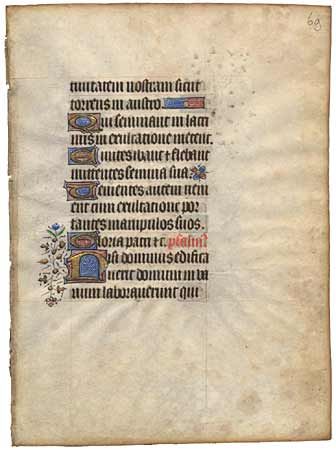 69
tiuitatem nostram sicut
torrens in austro
Qui seminant in lacri
mis in exultatione metent.
Euntes ibant et flebant
mittentes semina sua
Uenientes autem ueni
ent cum exultatione por
tantes manipulos suos.
Gloria patri etc. psalm
Nisi dominus edifica
uerit domum in ua
num laborauerunt qui